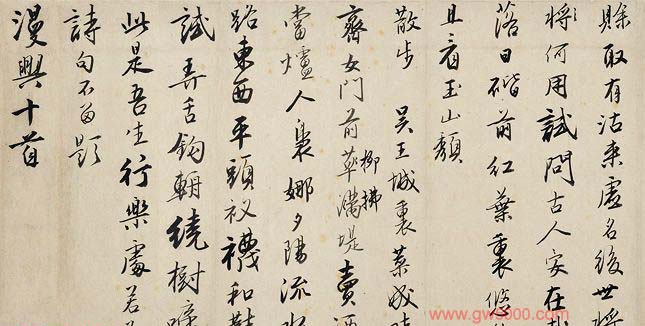 賒取有沽來虛名後世將
將何用試問古人安在
落日階前紅葉裏悠
且看玉山頹
散步 吳王城裏菜成
齊女門前草滿堤賣酒
柳拂
當爐人裊娜夕陽流水
路東西平頭衩襪和鞋
試弄舌鉤輈繞樹啼
此是吾生行樂處若
詩句不留題
漫興十首
www.gw3000.com